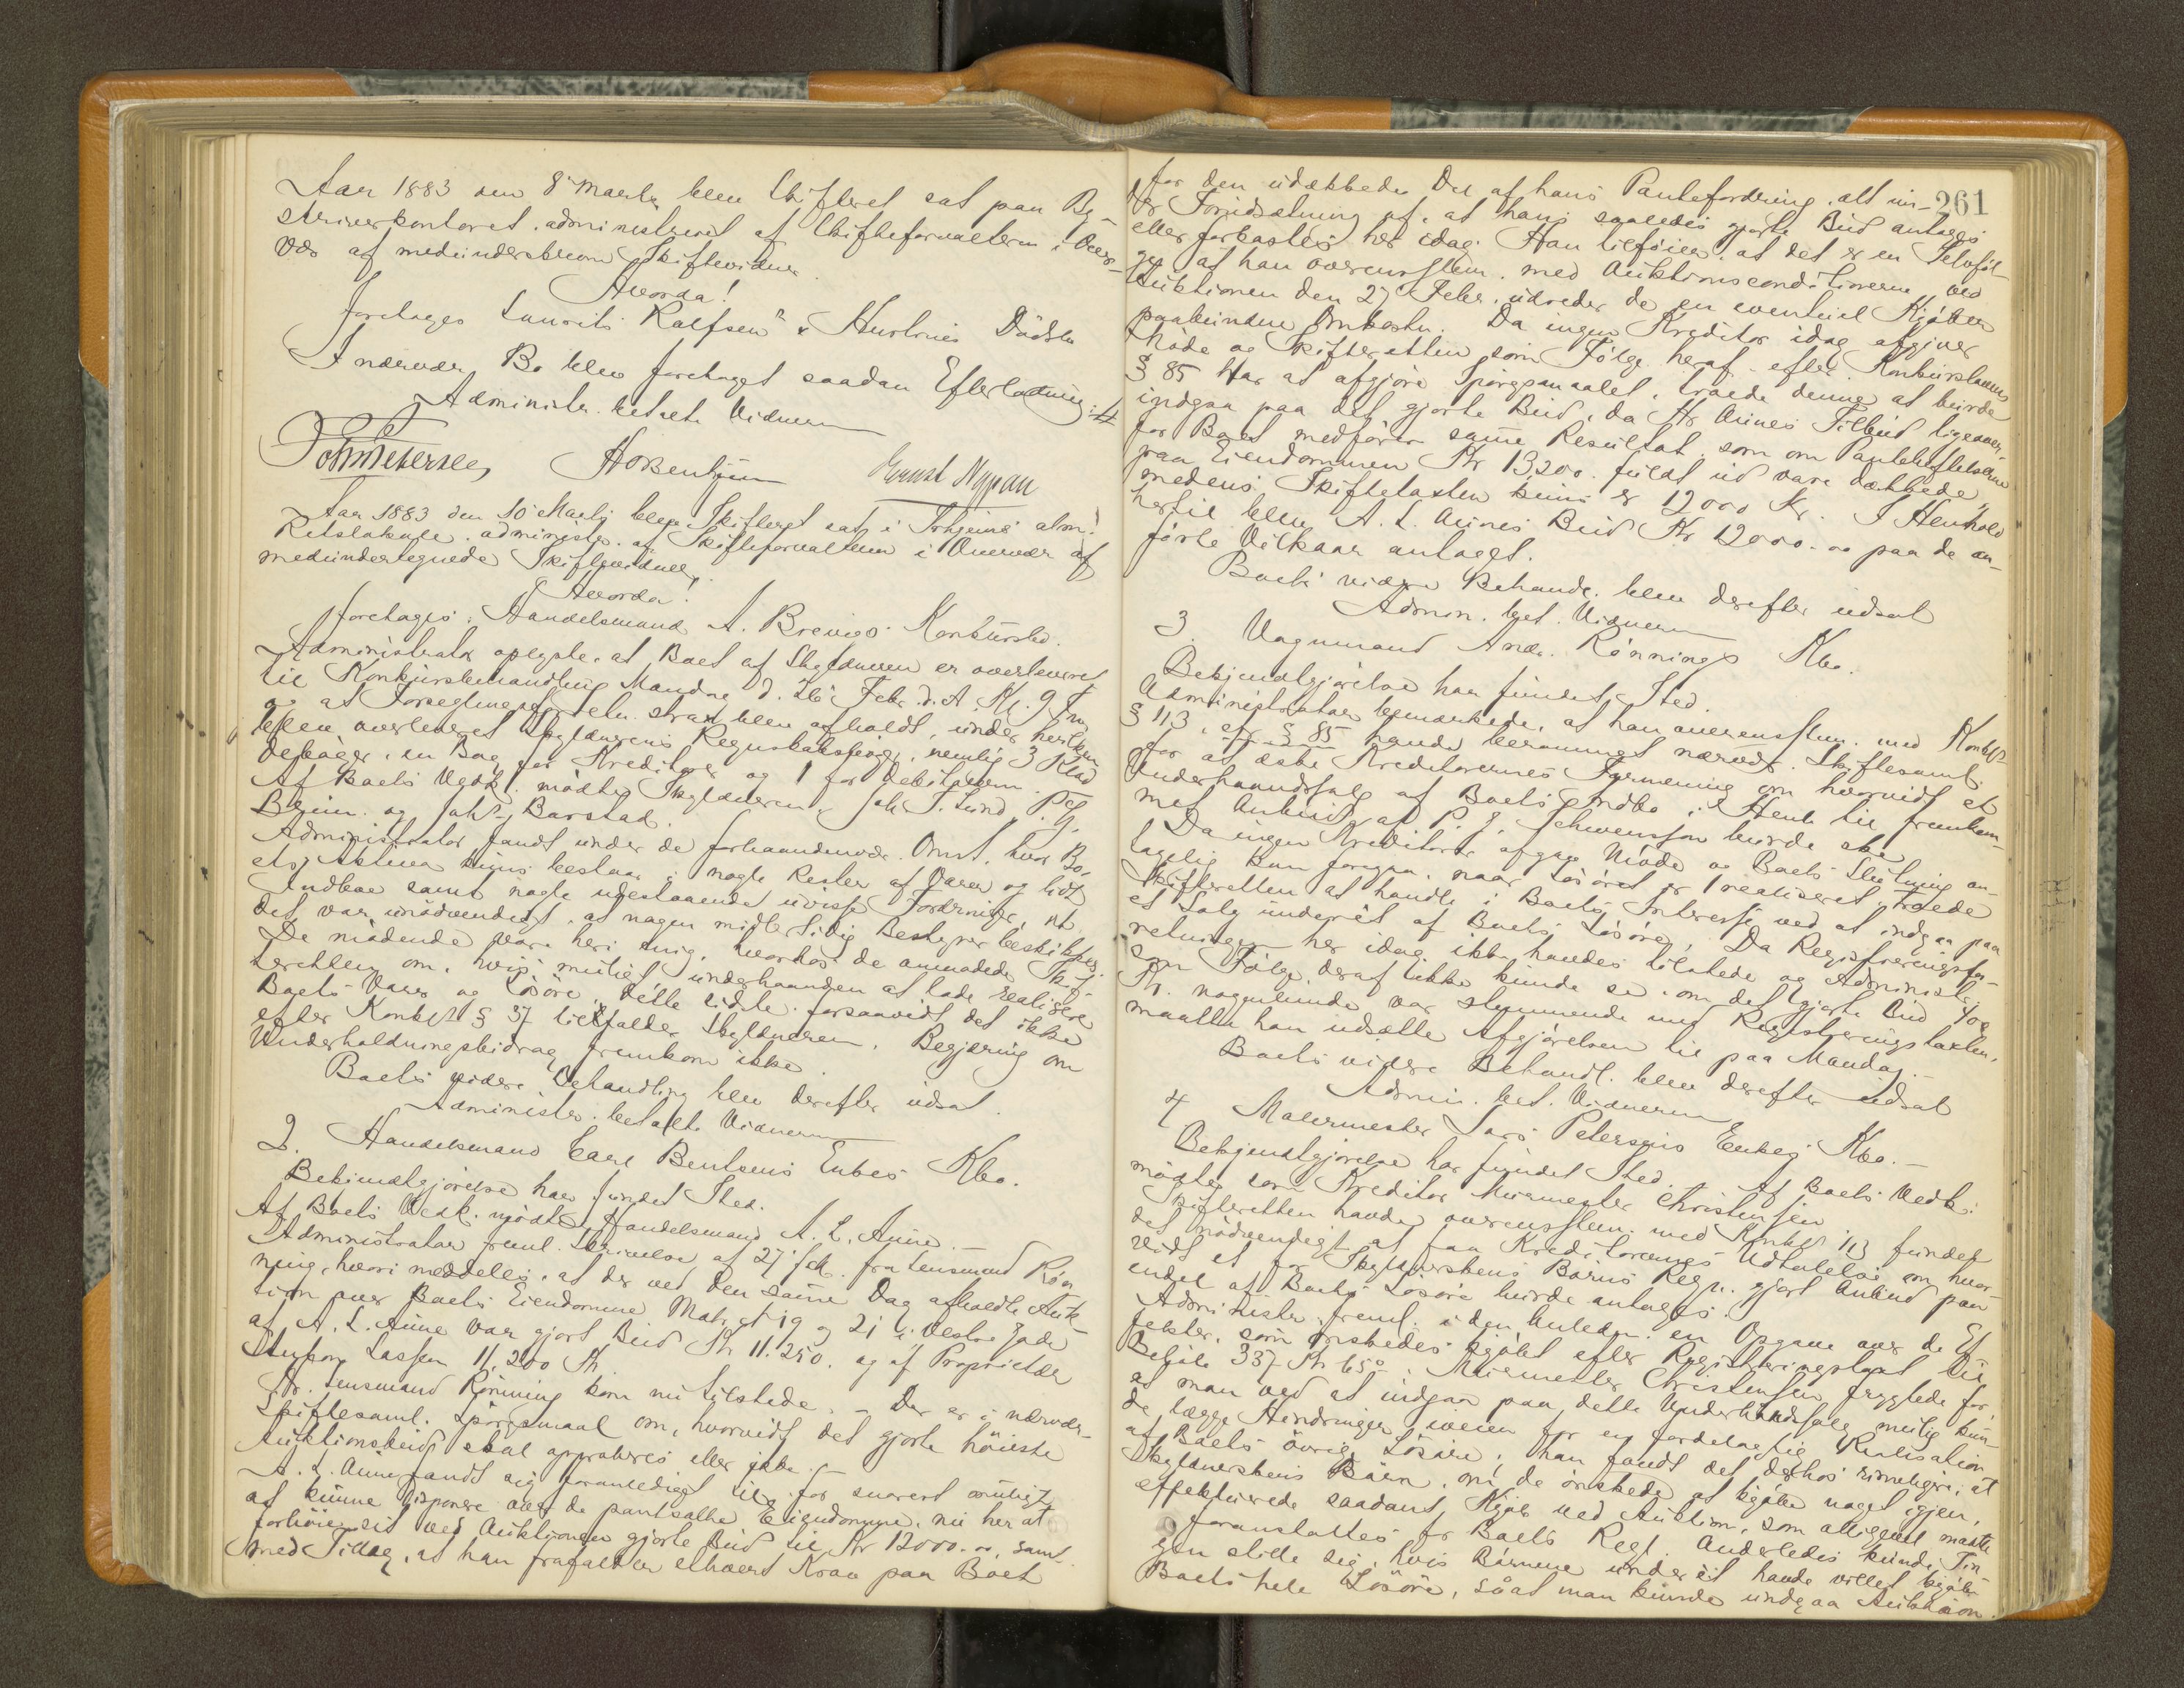 Aar 1883 den 8 Marts blev Skifteret sat paa By-
skriverkontoret, administreret af Skifteforvalteren i Over-
vær af medunderskrevne Skiftevidner.
Hvorda!
foretages Laurits Rolfsen & Hustrues Dødsbo
I nærvær. Bo blev foretaget saadan Efterlodning:
Administr. betalte Vidnerne
Ernst Nypan
Aar 1883 den 10 Marts blev Skifteret sat i Trhjems alm.
Retslokale, administr. af Skifteforvalteren i Overvær af
medundertegnede Skiftevidner.
Hvorda!
foretages: Handelsmand A. Brevigs Konkursbo.
Administrator oplyste, at Boet af Skyldneren er overleveret
til Konkursbehandling Mandag d. 26 Febr. d. A. Kl. 9 Fm
og at Forseglingsforretn. strax blev afholdt, under hvilken
blev overleveret Skyldnerens Regnskabsbøger, nemlig 3 Klad-
debøger, en Bog for Kreditorer og 1 for Debitorer.
Af Boets Vedk. mødte Skyldneren, Joh. S. Lund, P. G.
Bruun og Jak. Barstad.
Administrator fandt under de forhaandenvær. Omst., hvor Bo-
ets Aktiva kuns bestaar i nogle Rester af Varer og lidt
Indboe samt nogle udestaaende uvisse Fordringer, at
det var unødvendigt, at nogen midlertidig Bestyrer beskikkes.
De mødende vare heri enig, hvorhos de anmodede Skif-
teretten om, hvis muligt underhaanden at lade realisere
Boets Varer og Løsøre, dette sidste forsaavidt det ikke
efter Konkl. § 37 tilfalder Skyldneren. Begjæring om
Underholdningsbidrag fremkom ikke.
Boets videre Behandling blev derefter udsat.
Administr. betalte Vidnerne
2. Handelsmand Carl Bentsens Enkes Kbo.
Bekjendtgjørelse har fundet Sted.
Af Boets Vedk. mødte Handelsmand A. L. Aune.-
Administrator freml. Skrivelse af 27 feb. fra Lensmand Røn-
ning, hvori meddeles, at der ved den samme Dag afholdte Auk-
tion over Boets Eiendomme Matr. No 19 og 21 i Vestre Gade
af A. L. Aune var gjort Bud Kr 11.250. og af Proprietær
Lassen 11.200 Kr.
Hr. Lensmand Rønning kom nu tilstede. - Der er i nærvær.
Skiftesaml. Spørgsmaal om, hvorvidt det gjorte høieste
Auktionsbud skal approberes eller ikke. -
A. L. Aune fandt sig foranlediget til, for snarest muligt
at kunne disponere over de pantsatte Eiendomme, nu her at
forhøie sit ved Auktionen gjorte Bud til Kr 12000. oo, samt
med Tillæg, at han frafalder ethvert Krav paa Boet
261
for den udækkede Del af hans Pantefordring, alt un-
der Forudsætning af, at hans saaledes gjorte Bud antages
eller forkastes her idag. Han tilføier, at det er en Selvføl-
ge, at han overensstem. med Auktionsconditionerne ved
Auktionen den 27 Febr. udreder de en eventuel Kjøber
paahvilende Omkostn. Da ingen Kreditor idag afgiver
Møde og Skifteretten som Følge heraf efter Konkurslovens
§ 85 har at afgjøre Spørgsmaalet, troede denne at burde
indgaa paa det gjorte Bud, da Hr Aunes Tilbud ligeover-
for Boet medfører samme Resultat, som om Pantehæftelserne
paa Eiendommen Kr 13,200. fuldt ud vare dækkede,
medens Skiftetaxten kuns er 12000 Kr. I Henhold
hertil blev A. L. Aunes Bud Kr 12000. oo paa de an-
førte Vilkaar antaget.
Boets videre Behandl. blev derefter udsat
Admin. bet. Vidnerne
3. Vognmand And. Rønnings Kbo.
Bekjendtgjørelse har fundet Sted.
Administrator bemærkede, at han overensstem. med Konkl.
§ 113, cfr § 85 havde berammet nærvær. Skiftesaml.
for at æske Kreditorernes Formening om hvorvidt et
Underhaandssalg af Boets Indbo i Henh. til fremkom-
met Anbud af P. J. Schwensson burde ske.
Da ingen Kreditorer afgav Møde og Boets Slutning an-
tagelig kan foregaa, naar Løsøret er realiseret, troede
Skifteretten at handle i Boets Interesse ved at indgaa paa
et Salg underet af Boets Løsøre. Da Registreringsfor-
retningen her idag ikke havdes tilstede og Administr.
som Følge deraf ikke kunde se, om det gjorte Bud 400
Kr. nogenlunde var stemmende med Registreringstaxten,
maatte han udsætte Afgjørelsen til paa Mandag.-
Boets videre Behandl. blev derefter udsat
Admin. bet. Vidnerne
4 Malermester Lars Petersens Enkes Kbo.-
Bekjendtgjørelse har fundet Sted. Af Boets Vedk.
mødte som Kreditor Murmester Christensen
Skifteretten havde overensstem. med Konkl. 113 fundet
det nødvendigt at faa Kreditorernes Udtalelse om hvor-
vidt et for Skyldnerskens Børns Regn. gjort Anbud paa
endel af Boets Løsøre burde antages.
Administr. freml. i den Anledn. en Opgave over de Ef-
fekter, som ønskedes kjøbt efter Registreringstaxt til
Beløb 337 Kr 65 ø. Murmester Christensen frygtede for,
at man ved at indgaa paa dette Underhandssalg mulig kun-
de lægge Hindringer iveien for en fordelagtig Realisation
af Boets øvrige Løsøre; han fandt det derhos rimeligere, at
Skyldnerskens Børn, om de ønskede at kjøbe noget igjen,
effektuerede saadant Kjøb ved Auktion, som alligevel maatte
foranstaltes for Boets Regn. Anderledes kunde Tin-
gen stille sig, hvis Børnene under eet havde villet kjøbe
Boets hele Løsøre, saat man kunde undgaa Auktion.